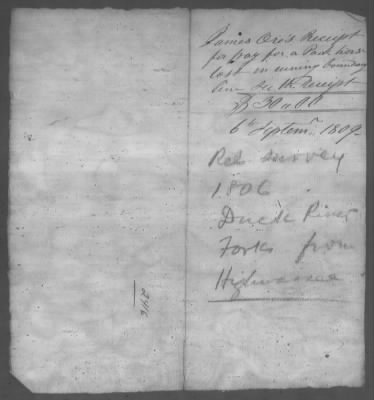 James Ore's Receipt
for pay for a Pack horse
lost in runing boundary
line
Receipt
$ 30.00
6th Septemr. 1809
Rel Survey
1806
Duck River
Forks from
Highwassee